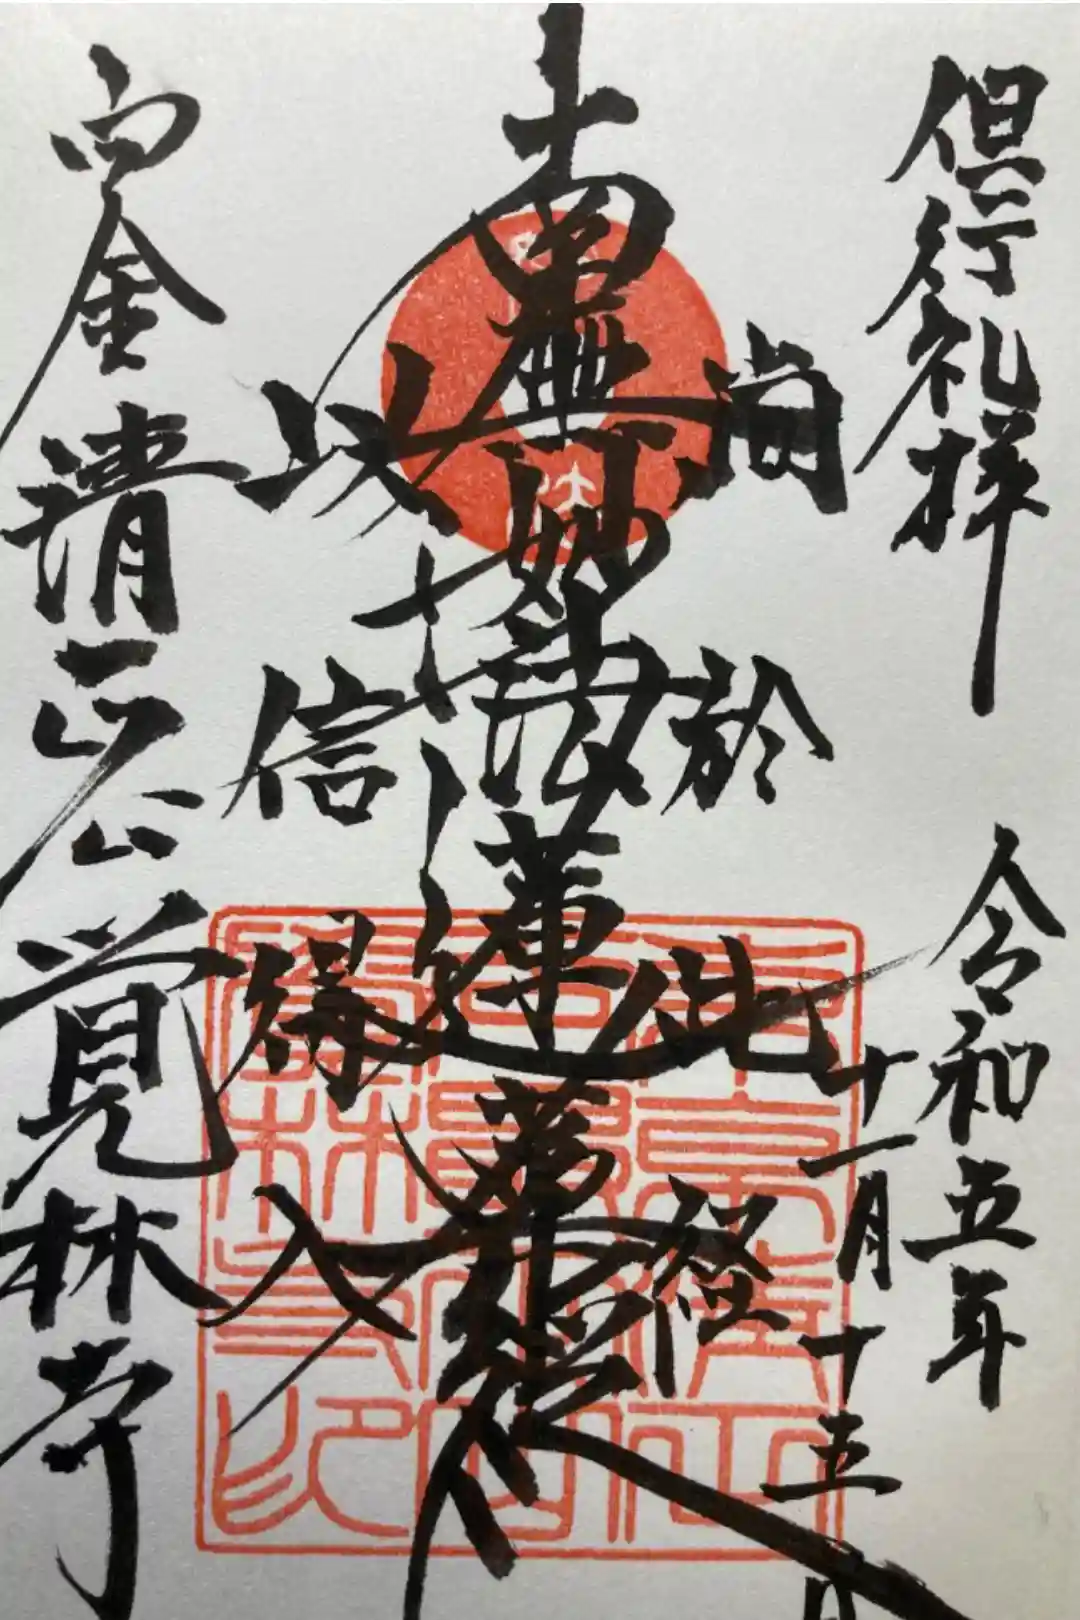 但行礼拝
令和五年
十一月十五日
尚於此経
南無妙法蓮華経
以信得入
白金清正公覚林寺